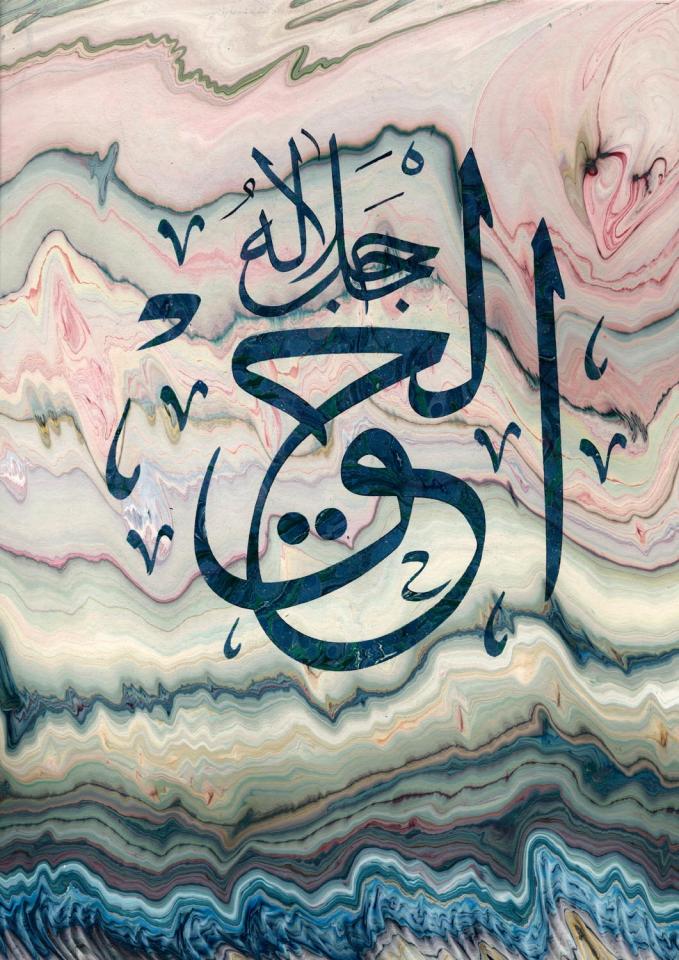 الحق
جل جلاله